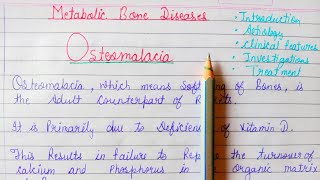 Metabolic Bone Diseases
Osteomalacia
• Introduction
• Aetiology
• Clinical features
• Investigations
• Treatment
Osteomalacia, which means Sof ng of Bones, is
the Adult Counterpart of R ets.
It is Primarily due to Deficien of Vitamin D.
This Results in failure to Rep the turnover of
calcium and Phosphorus in e Organic matrix